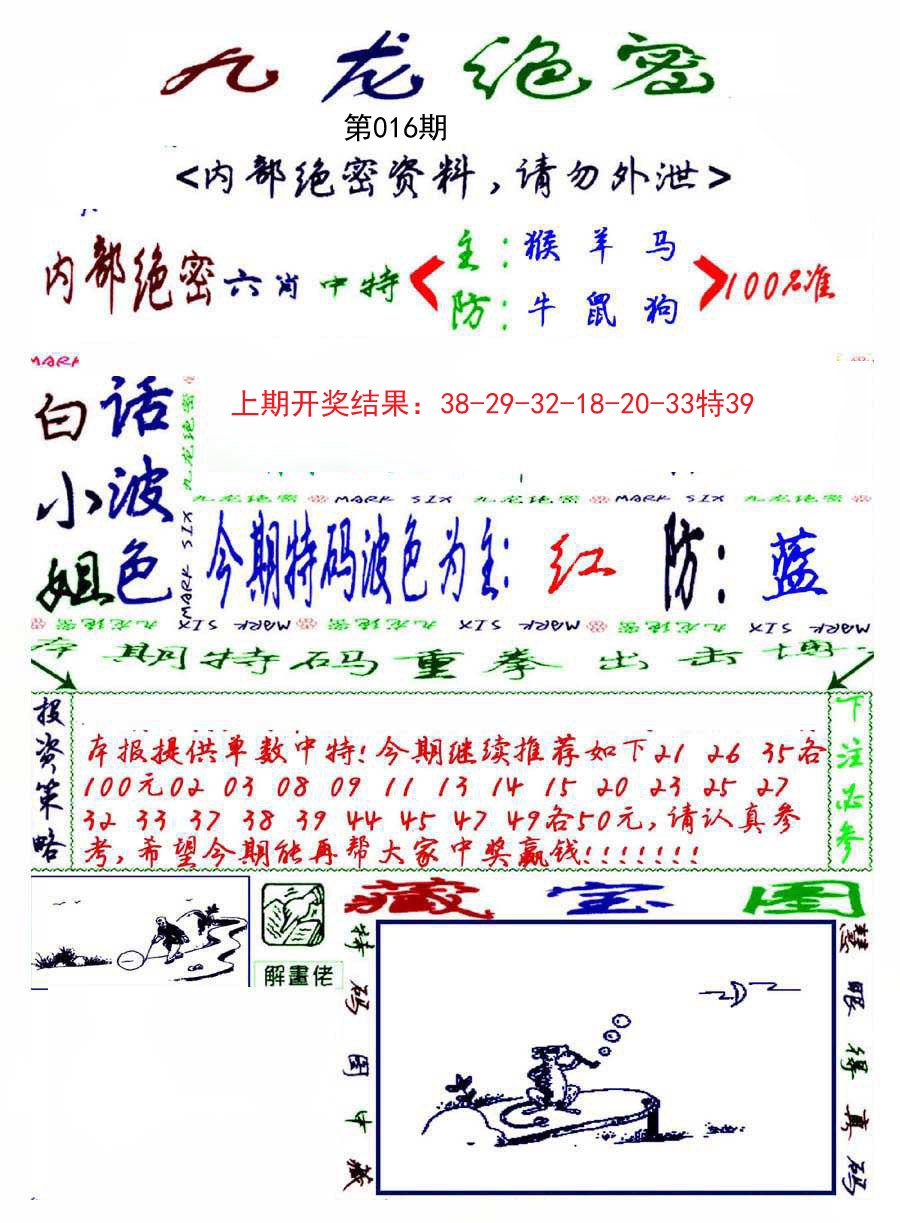 九龙绝密
第016期
<内部绝密资料,请勿外泄>
内部绝密六肖中特
主:猴羊马
防:牛鼠狗
100%准
MARK
白小姐
话波色
上期开奖结果：38-29-32-18-20-33特39
九龙绝密 MARK SIX 九龙绝密 MARK SIX 九龙绝密
今期特码波色为主: 红 防: 蓝
九龙绝密 MARK SIX 九龙绝密 MARK SIX
本期特码重拳出击
投资策略
本报提供单数中特!今期继续推荐如下21 26 35各
100元02 03 08 09 11 13 14 15 20 23 25 27
32 33 37 38 39 44 45 47 49各50元,请认真参
考,希望今期能再帮大家中奖赢钱!!!!!!!
下注必参
藏宝图
解畫佬
特码图中藏
慧眼得真码